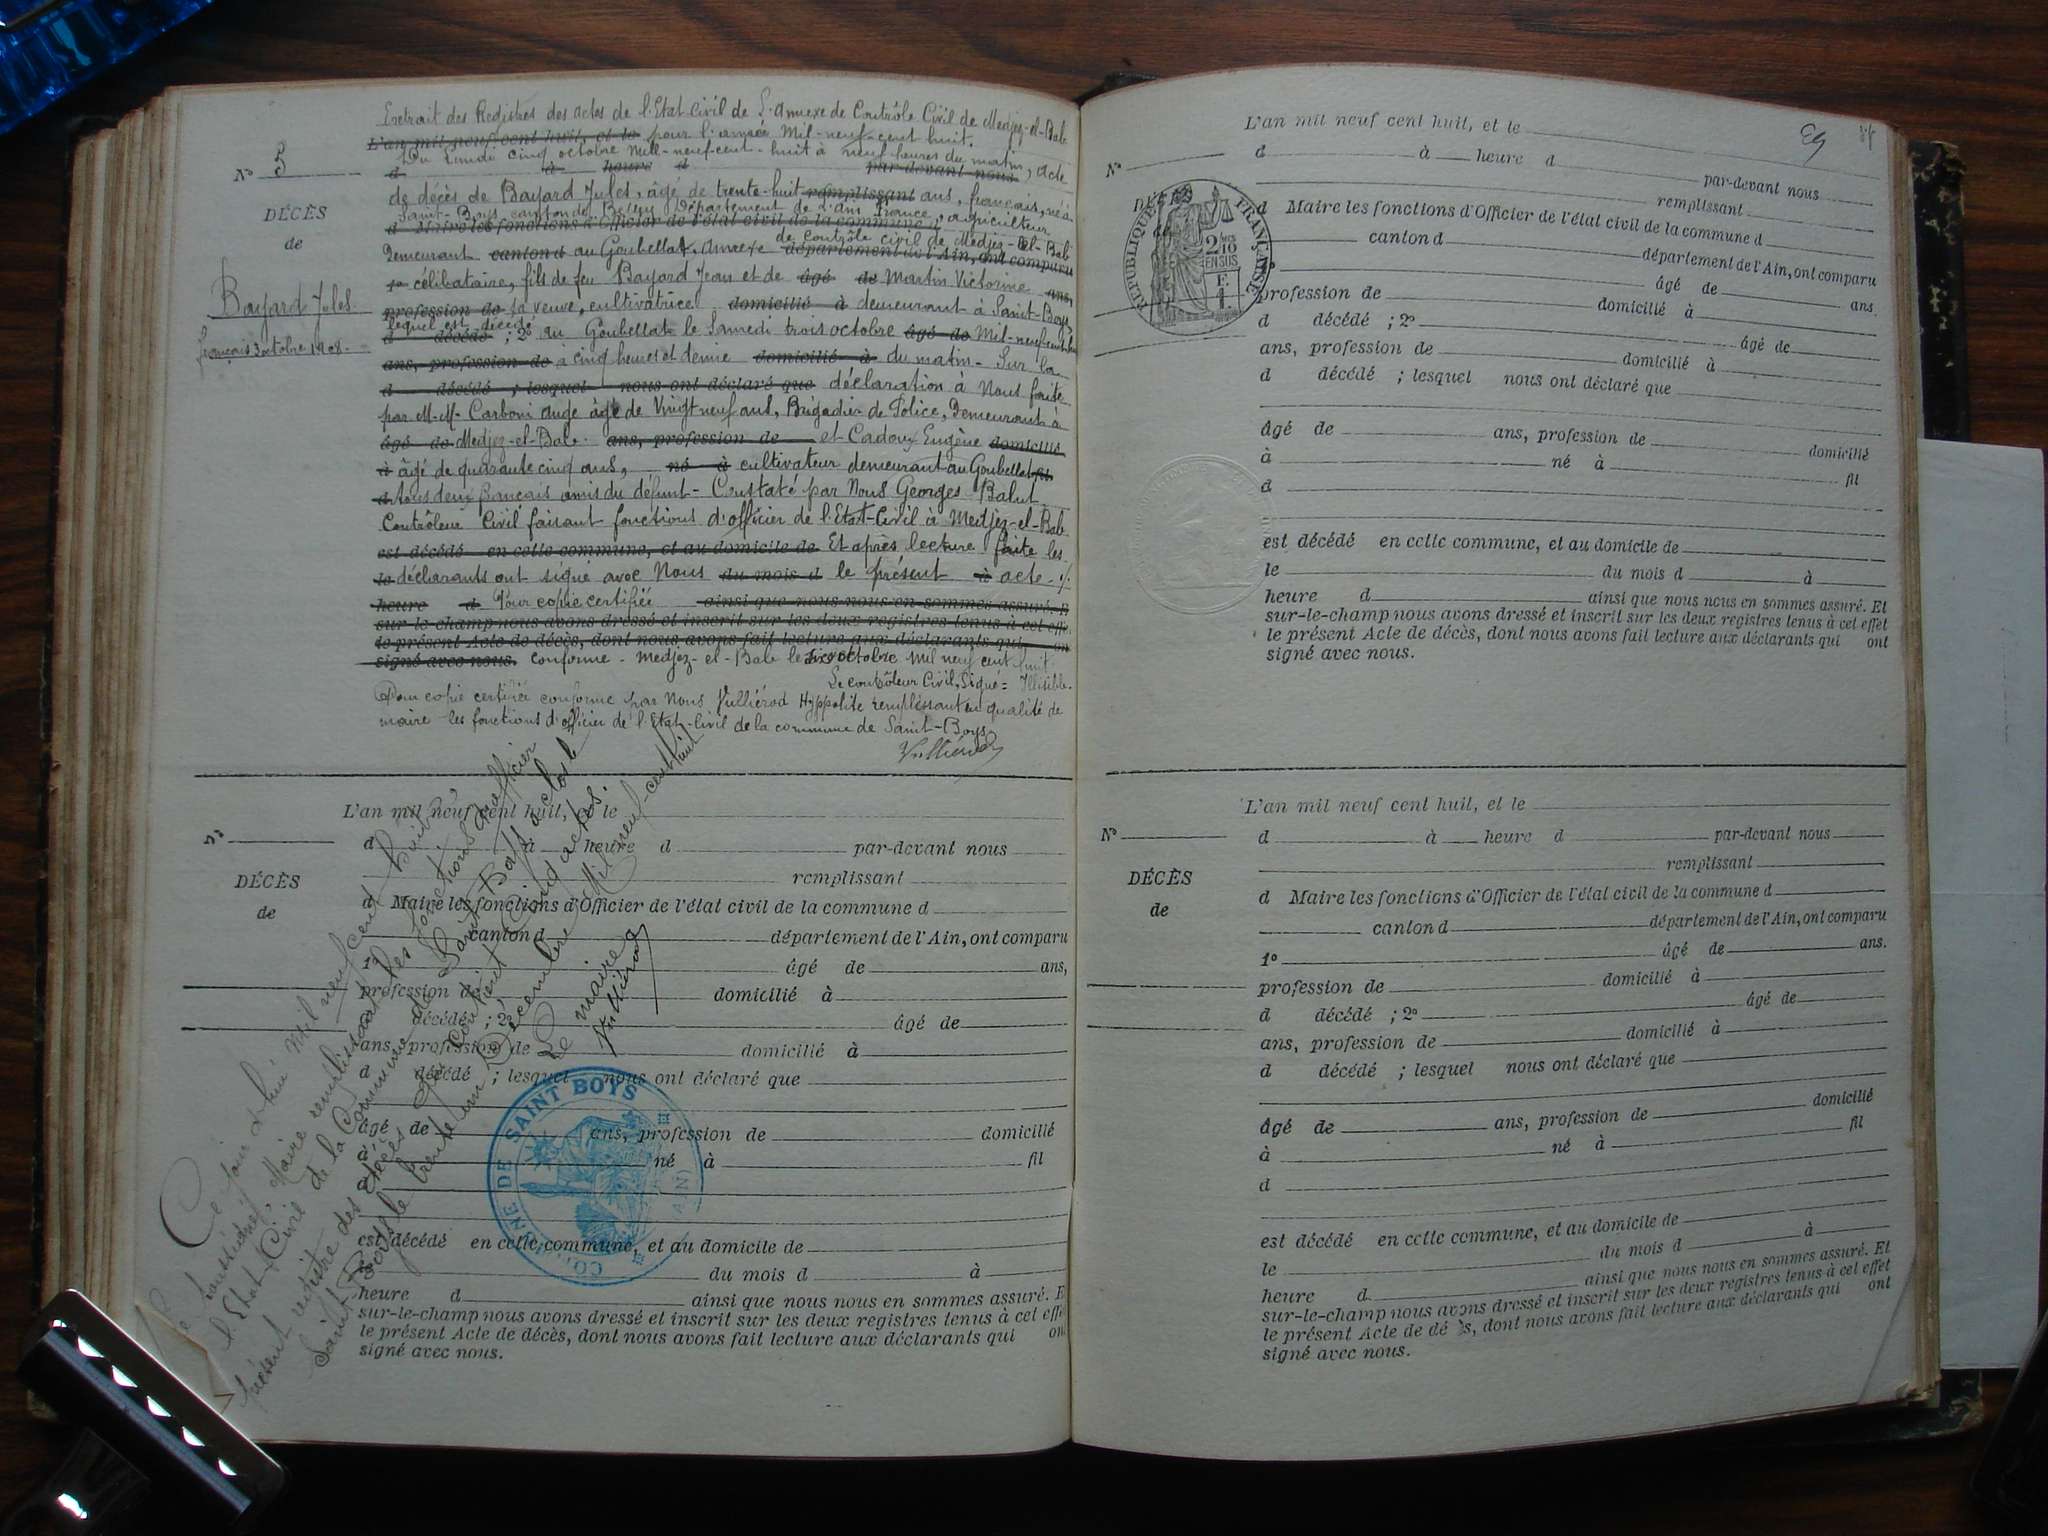 Extrait des Registres des actes de l'Etat Civil de l'Annexe de Contrôle Civil de Medjez-el-Bab
L'an mil neuf cent huit, et le pour l'année Mil-neuf-cent huit.
Du Lundi cinq octobre Mill-neuf-cent-huit à neuf heures du matin, acte
d à heure d par-devant nous
N° 5
de décès de Bayard Jules, âgé de trente-huit remplissant ans, français, né à
DÉCÈS
de
Saint-Boys canton de Belley Département de l'Ain France, agriculteur
d Maire les fonctions d'Officier de l'état civil de la commune d
de Contrôle civil de Medjez-el-Bab
Demeurant canton d au Goubellat. Annexe département de l'Ain, ont comparu
1° célibataire, fils de feu Bayard Jean et de âgé de Martin Victorine ans,
Bayard Jules.
profession de sa veuve, cultivatrice domicilié à demeurant à Saint-Boys
lequel est décédé
d décédé ; 2° au Goubellat le Samedi trois octobre âgé de Mil-neuf-cent-huit
Français 3 octobre 1908.
ans, profession de à cinq heures et demie domicilié à du matin - Sur la
d décédé ; lesquel nous ont déclaré que déclaration à Nous faite
par M.M. Carboni Ange âgé de Vingt neuf ans, Brigadier de Police, Demeurant à
âgé de Medjez-el-Bab. ans, profession de et Cadoux Eugène domicilié
à âgé de quarante cinq ans, né à cultivateur demeurant au Goubellat fil
d tous deux français amis du défunt - Constaté par Nous Georges Balut
Contrôleur Civil faisant fonctions d'officier de l'Etat-Civil à Medjez-el-Bab
est décédé en cette commune, et au domicile de Et après lecture faite les
le déclarants ont signé avec Nous du mois d le présent à acte ./.
heure d Pour copie certifiée ainsi que nous nous en sommes assuré. Et
sur-le-champ nous avons dressé et inscrit sur les deux registres tenus à cet effet
le présent Acte de décès, dont nous avons fait lecture aux déclarants qui ont
signé avec nous. conforme - Medjez-el-Bab le six octobre Mil neuf cent huit
Le contrôleur Civil, Signé = Illisible.
Pour copie certifiée conforme par Nous Vulliérod Hyppolite remplissant en qualité de
maire les fonctions d'officier de l'Etat-Civil de la commune de Saint-Boys
Vulliérod
L'an mil neuf cent huit, et le
N°
d à heure d par-devant nous
remplissant
DÉCÈS
de
d Maire les fonctions d'Officier de l'état civil de la commune d
canton d département de l'Ain, ont comparu
âgé de ans,
profession de domicilié à
d décédé ; 2° âgé de
ans, profession de domicilié à
d décédé ; lesquel nous ont déclaré que
âgé de ans, profession de domicilié
à né à fil
d
est décédé en cette commune, et au domicile de
du mois d à
heure d ainsi que nous nous en sommes assuré. E
sur-le-champ nous avons dressé et inscrit sur les deux registres tenus à cet effe
le présent Acte de décès, dont nous avons fait lecture aux déclarants qui on
signé avec nous.
Ce jour d'hui Mil neuf cent huit
soussigné, Maire remplissant les fonctions d'officier
l'Etat Civil de la Commune de Saint Boys a clos le
présent registre des décès qui contient Cinq actes.
Saint Boys le trente un Décembre Mil neuf-cent huit
Le maire
Vulliérod
COMMUNE DE SAINT BOYS
(AIN)
Eg
L'an mil neuf cent huit, et le
N°
d à heure d
par-devant nous
DÉCÈS
de
remplissant
d Maire les fonctions d'Officier de l'état civil de la commune d
canton d
département de l'Ain, ont comparu
âgé de ans.
profession de domicilié à
d décédé ; 2° âgé de
ans, profession de domicilié à
d décédé ; lesquel nous ont déclaré que
âgé de ans, profession de domicilié
à né à fil
d
est décédé en cette commune, et au domicile de
le du mois d à
heure d ainsi que nous nous en sommes assuré. Et
sur-le-champ nous avons dressé et inscrit sur les deux registres tenus à cet effet
le présent Acte de décès, dont nous avons fait lecture aux déclarants qui ont
signé avec nous.
RÉPUBLIQUE FRANÇAISE
2 10
EN SUS
L'an mil neuf cent huit, et le
N°
d à heure d par-devant nous
remplissant
DÉCÈS
de
d Maire les fonctions d'Officier de l'état civil de la commune d
canton d département de l'Ain, ont comparu
1° âgé de ans.
profession de domicilié à
d décédé ; 2° âgé de
ans, profession de domicilié à
d décédé ; lesquel nous ont déclaré que
âgé de ans, profession de domicilié
à né à fil
d
est décédé en cette commune, et au domicile de
le du mois d à
heure d ainsi que nous nous en sommes assuré. Et
sur-le-champ nous avons dressé et inscrit sur les deux registres tenus à cet effet
le présent Acte de décès, dont nous avons fait lecture aux déclarants qui ont
signé avec nous.